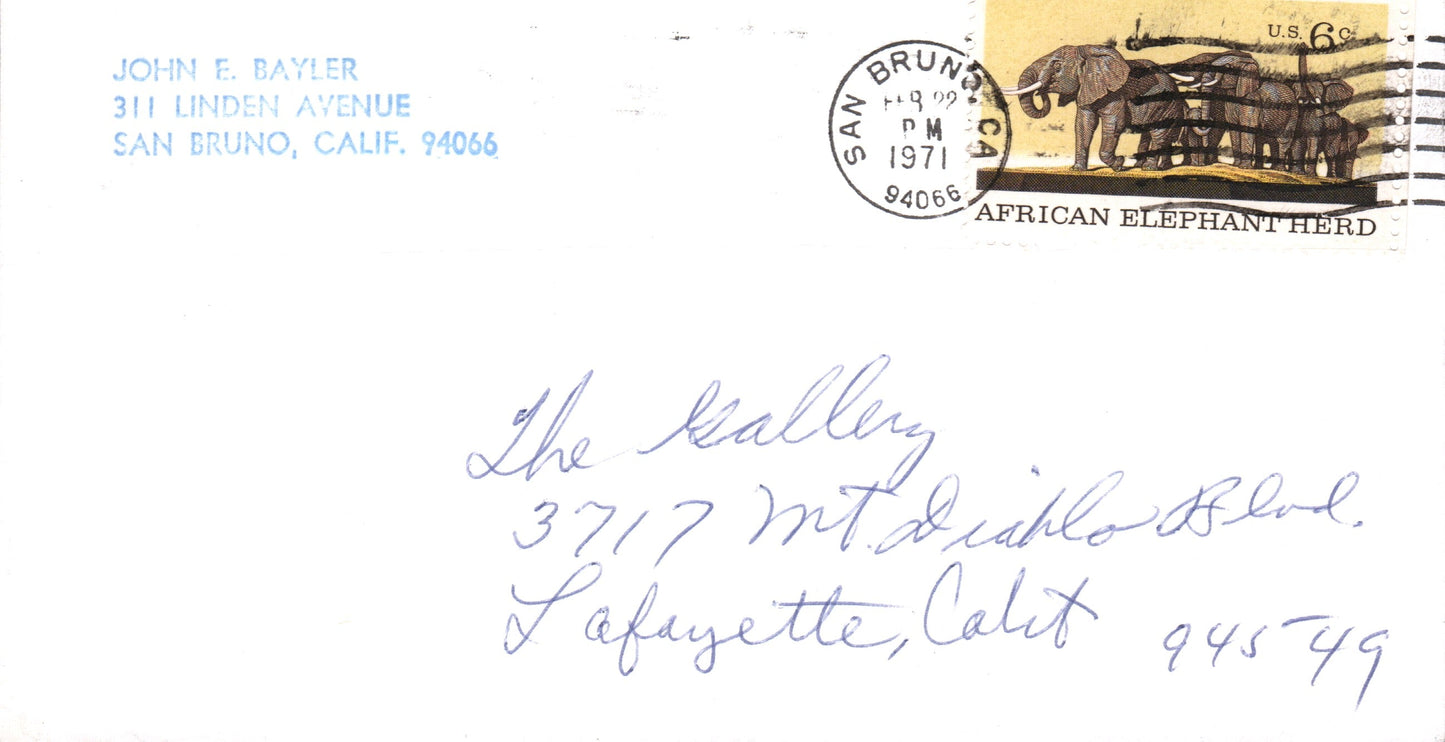 JOHN E. BAYLER
311 LINDEN AVENUE
SAN BRUNO, CALIF. 94066
SAN BRUNO, CA
FEB 22
PM
1971
94066
U.S. 6c
AFRICAN ELEPHANT HERD
The Gallery
3717 Mt. Diablo Blvd.
Lafayette, Calif 94549